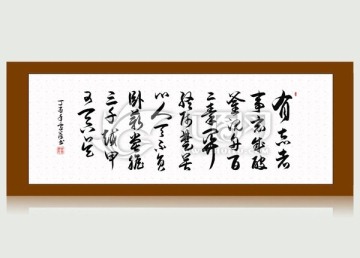 有志者
事竟成破
釜沉舟百
二秦关
终属楚苦
心人天不负
卧薪尝胆
三千越甲
可吞吴